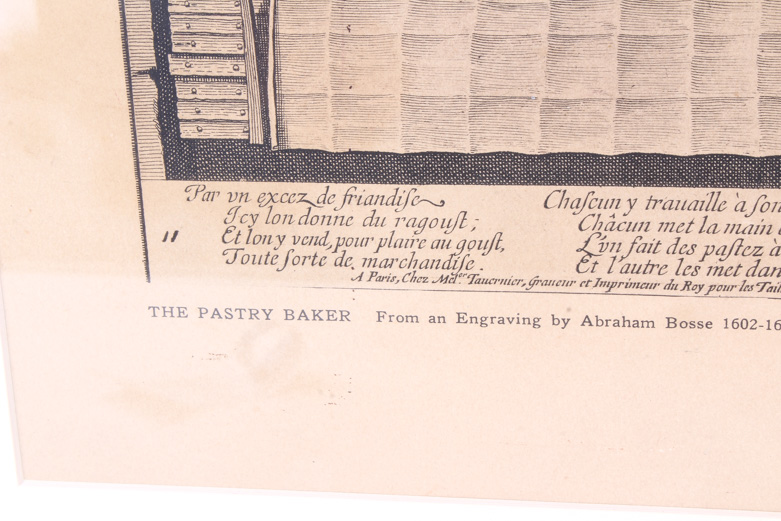 Par vn excez de friandiſe
Icy lon donne du ragouſt ;
Et lon y vend, pour plaire au gouſt,
Toute ſorte de marchandiſe .
Chaſcun y trauaille à ſon
Châcun met la main
L'vn fait des paſtez à
Et l'autre les met dan
A Paris, Chez Mel.ger Tauernier, Graueur et Imprimeur du Roy pour les Tail
THE PASTRY BAKER From an Engraving by Abraham Bosse 1602-16